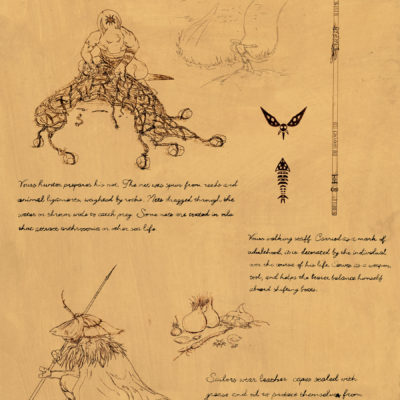 Vows hunter prepares his net. The net was spun from reeds and
animal ligaments, weighted by rocks. Nets dragged through the
water or thrown wide to catch prey. Some nets are coated in oils
that attract anthronomia or other sea life.
Vows walking staff. Carried as a mark of
adulthood, it is decorated by the individual
over the course of his life. Serves as a weapon,
tool, and helps the bearer balance himself
aboard shifting boats.
Sailors wear leather capes sealed with
grease and oil to protect themselves from